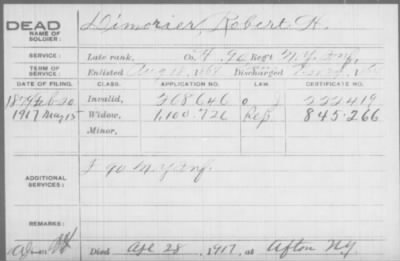 DEAD
NAME OF SOLDIER: Dimorier, Robert H.
SERVICE: Late rank, Co. H. 90 Reg't N.Y. Inf.
TERM OF SERVICE: Enlisted Aug 186 Discharged 186
DATE OF FILING. CLASS. APPLICATION NO. LAW. CERTIFICATE NO.
1879 Feb 20 Invalid, 268646 222419
1917 May 15 Widow, 1,100.726 Reg 845.266
Minor,
ADDITIONAL SERVICES: 90 N.Y. Inf.
REMARKS:
Died Apr 28, 1917, at Afton NY.